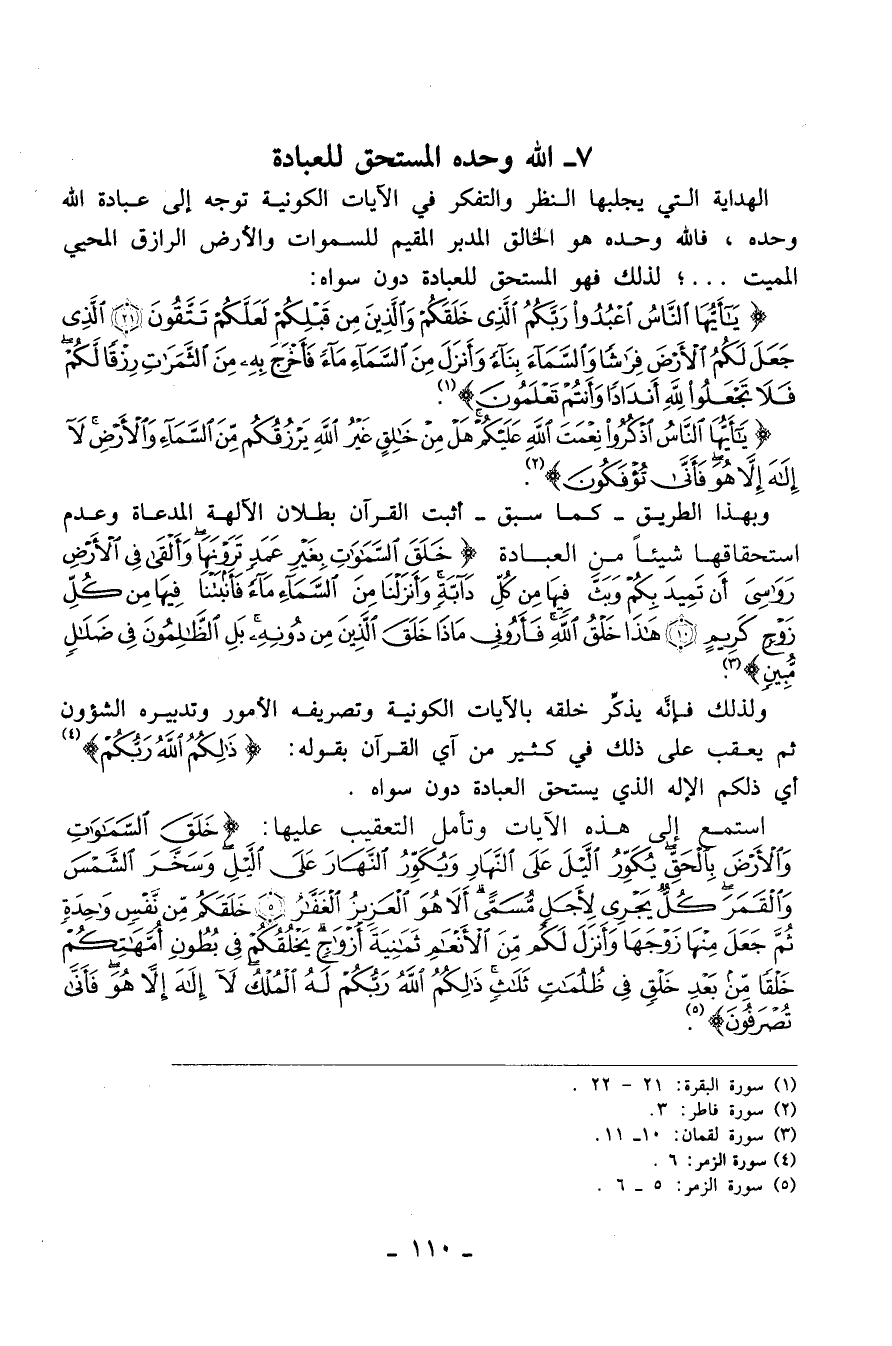 ٧ـ الله وحده المستحق للعبادة
الهداية التي يجلبها النظر والتفكر في الآيات الكونية توجه إلى عبادة الله
وحده ، فالله وحده هو الخالق المدبر المقيم للسموات والأرض الرازق المحيي
المميت ...؛ لذلك فهو المستحق للعبادة دون سواه:
﴿ يَـٰٓأَيُّهَا ٱلنَّاسُ ٱعْبُدُوا۟ رَبَّكُمُ ٱلَّذِى خَلَقَكُمْ وَٱلَّذِينَ مِن قَبْلِكُمْ لَعَلَّكُمْ تَتَّقُونَ ﴿٢١﴾ ٱلَّذِى
جَعَلَ لَكُمُ ٱلْأَرْضَ فِرَٰشًا وَٱلسَّمَآءَ بِنَآءً وَأَنزَلَ مِنَ ٱلسَّمَآءِ مَآءً فَأَخْرَجَ بِهِۦ مِنَ ٱلثَّمَرَٰتِ رِزْقًا لَّكُمْ ۖ
فَلَا تَجْعَلُوا۟ لِلَّهِ أَندَادًا وَأَنتُمْ تَعْلَمُونَ ﴾(١).
﴿ يَـٰٓأَيُّهَا ٱلنَّاسُ ٱذْكُرُوا۟ نِعْمَتَ ٱللَّهِ عَلَيْكُمْ ۚ هَلْ مِنْ خَـٰلِقٍ غَيْرُ ٱللَّهِ يَرْزُقُكُم مِّنَ ٱلسَّمَآءِ وَٱلْأَرْضِ ۚ لَآ
إِلَـٰهَ إِلَّا هُوَ ۖ فَأَنَّىٰ تُؤْفَكُونَ ﴾(٢).
وبهذا الطريق ـ كما سبق ـ أثبت القرآن بطلان الآلهة المدعاة وعدم
استحقاقها شيئاً من العبادة ﴿ خَلَقَ ٱلسَّمَـٰوَٰتِ بِغَيْرِ عَمَدٍ تَرَوْنَهَا ۖ وَأَلْقَىٰ فِى ٱلْأَرْضِ
رَوَٰسِىَ أَن تَمِيدَ بِكُمْ وَبَثَّ فِيهَا مِن كُلِّ دَآبَّةٍ ۚ وَأَنزَلْنَا مِنَ ٱلسَّمَآءِ مَآءً فَأَنۢبَتْنَا فِيهَا مِن كُلِّ
زَوْجٍ كَرِيمٍ ﴿١٠﴾ هَـٰذَا خَلْقُ ٱللَّهِ فَأَرُونِى مَاذَا خَلَقَ ٱلَّذِينَ مِن دُونِهِۦ ۚ بَلِ ٱلظَّـٰلِمُونَ فِى ضَلَـٰلٍ
مُّبِينٍ ﴾(٣).
ولذلك فإنَّه يذكِّر خلقه بالآيات الكونية وتصريفه الأمور وتدبيره الشؤون
ثم يعقب على ذلك في كثير من آي القرآن بقوله: ﴿ ذَٰلِكُمُ ٱللَّهُ رَبُّكُمْ ﴾(٤)
أي ذلكم الإله الذي يستحق العبادة دون سواه .
استمع إلى هذه الآيات وتأمل التعقيب عليها: ﴿ خَلَقَ ٱلسَّمَـٰوَٰتِ
وَٱلْأَرْضَ بِٱلْحَقِّ ۖ يُكَوِّرُ ٱلَّيْلَ عَلَى ٱلنَّهَارِ وَيُكَوِّرُ ٱلنَّهَارَ عَلَى ٱلَّيْلِ ۖ وَسَخَّرَ ٱلشَّمْسَ
وَٱلْقَمَرَ ۖ كُلٌّ يَجْرِى لِأَجَلٍ مُّسَمًّى ۗ أَلَا هُوَ ٱلْعَزِيزُ ٱلْغَفَّـٰرُ ﴿٥﴾ خَلَقَكُم مِّن نَّفْسٍ وَٰحِدَةٍ
ثُمَّ جَعَلَ مِنْهَا زَوْجَهَا وَأَنزَلَ لَكُم مِّنَ ٱلْأَنْعَـٰمِ ثَمَـٰنِيَةَ أَزْوَٰجٍ ۚ يَخْلُقُكُمْ فِى بُطُونِ أُمَّهَـٰتِكُمْ
خَلْقًا مِّنۢ بَعْدِ خَلْقٍ فِى ظُلُمَـٰتٍ ثَلَـٰثٍ ۚ ذَٰلِكُمُ ٱللَّهُ رَبُّكُمْ لَهُ ٱلْمُلْكُ ۖ لَآ إِلَـٰهَ إِلَّا هُوَ ۖ فَأَنَّىٰ
تُصْرَفُونَ ﴾(٥).
(١) سورة البقرة: ٢١ – ٢٢ .
(٢) سورة فاطر: ٣.
(٣) سورة لقمان: ١٠ـ ١١.
(٤) سورة الزمر: ٦ .
(٥) سورة الزمر: ٥ ـ ٦ .
ـ ١١٠ ـ